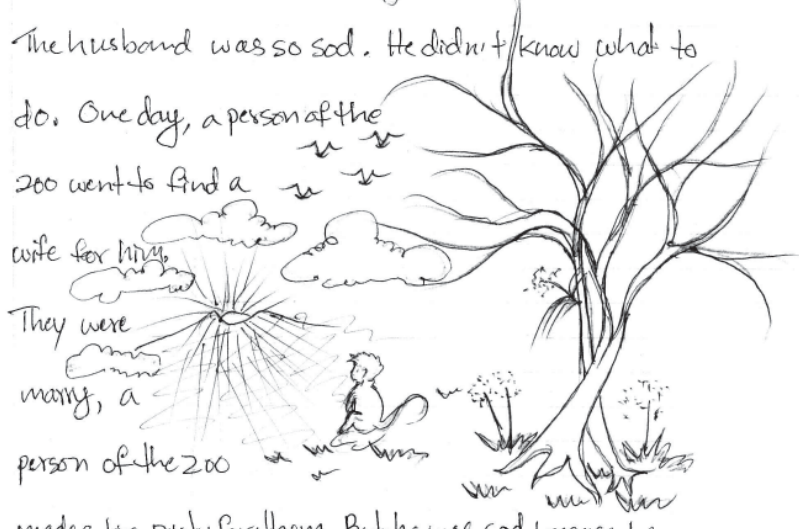 The husband was so sad. He didn't know what to
do. One day, a person of the
zoo went to find a
wife for him.
They were
marry, a
person of the zoo